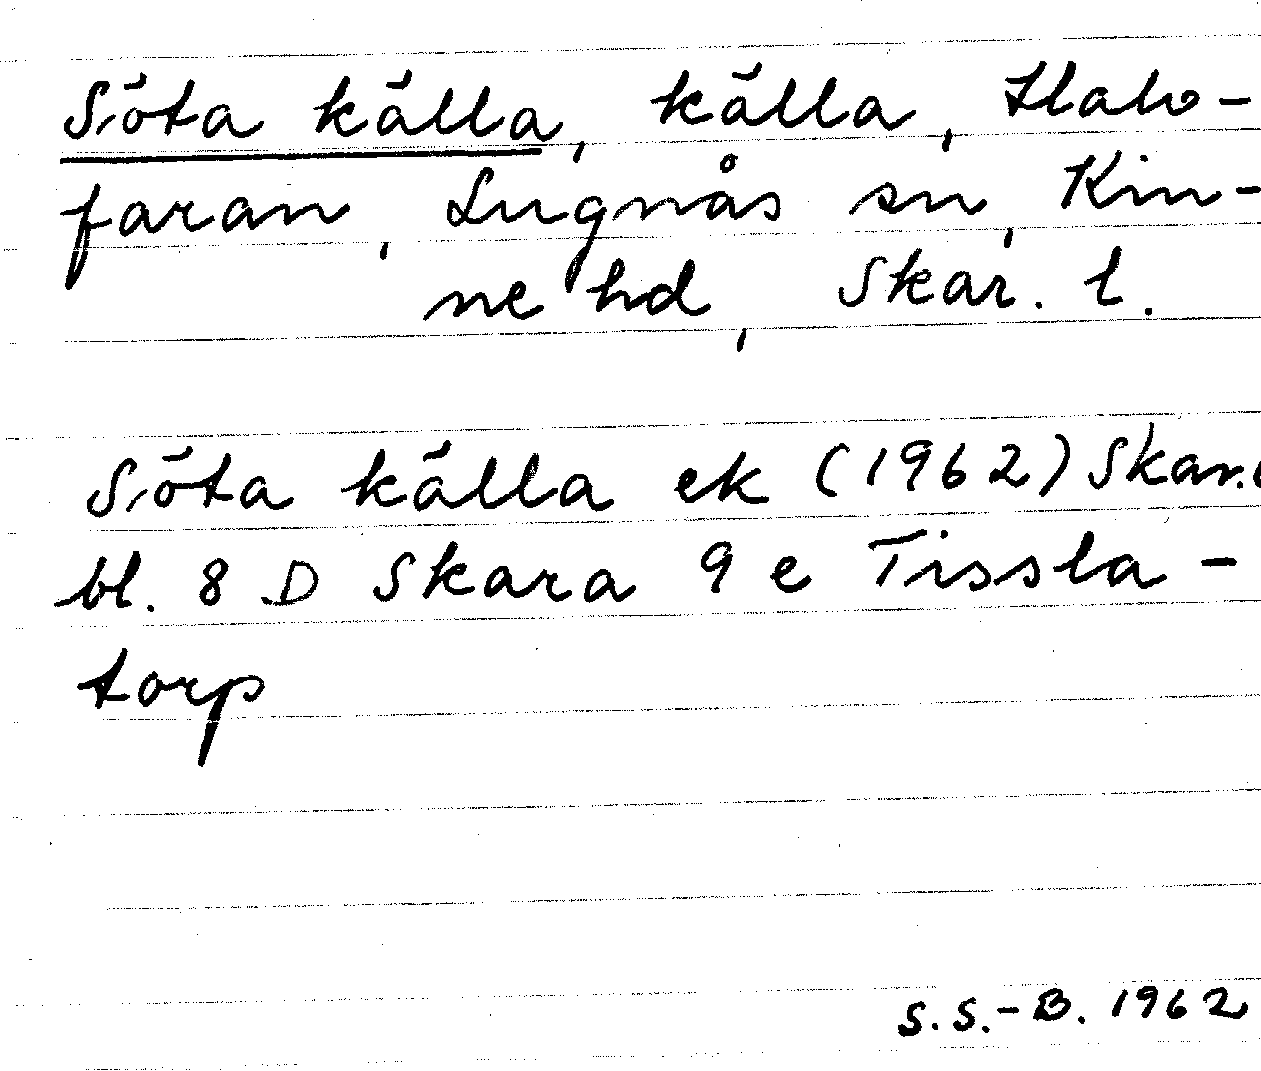 Söta källa, källa, Halv-
faran, Lugnås sn, Kin-
ne hd, Skar. l.
Söta källa ek (1962) Skar.l
bl. 8 D Skara 9 e Tissla-
torp
S.S.-B. 1962